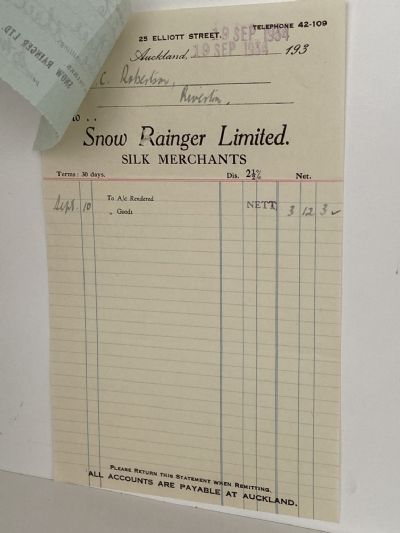 SNOW RAINGER LTD
25 ELLIOTT STREET. TELEPHONE 42-109
19 SEP 1934
Auckland, 19 SEP 1934 193
C. Robertson,
Riverton,
to . .
Snow Rainger Limited.
SILK MERCHANTS
Terms: 30 days. Dis. 2½% Net.
Sept. 10 To A/c Rendered
„ Goods NETT 3 12 3 ✓
PLEASE RETURN THIS STATEMENT WHEN REMITTING.
ALL ACCOUNTS ARE PAYABLE AT AUCKLAND.